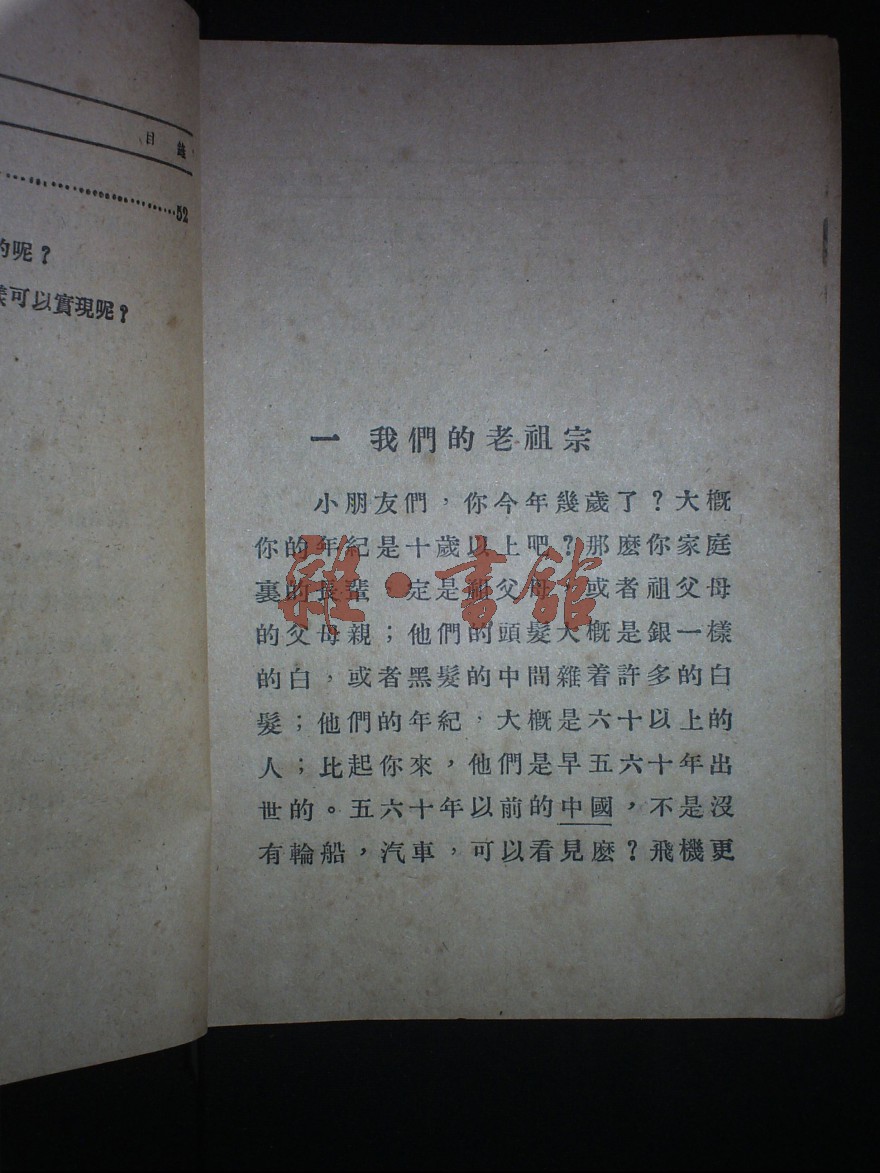 目錄
52
的呢？
樣可以實現呢？
一 我們的老祖宗
小朋友們，你今年幾歲了？大概
你的年紀是十歲以上吧？那麼你家庭
裏的長輩 定是祖父母，或者祖父母
的父母親；他們的頭髮大概是銀一樣
的白，或者黑髮的中間雜着許多的白
髮；他們的年紀，大概是六十以上的
人；比起你來，他們是早五六十年出
世的。五六十年以前的中國，不是沒
有輪船，汽車，可以看見麼？飛機更
雜·書館